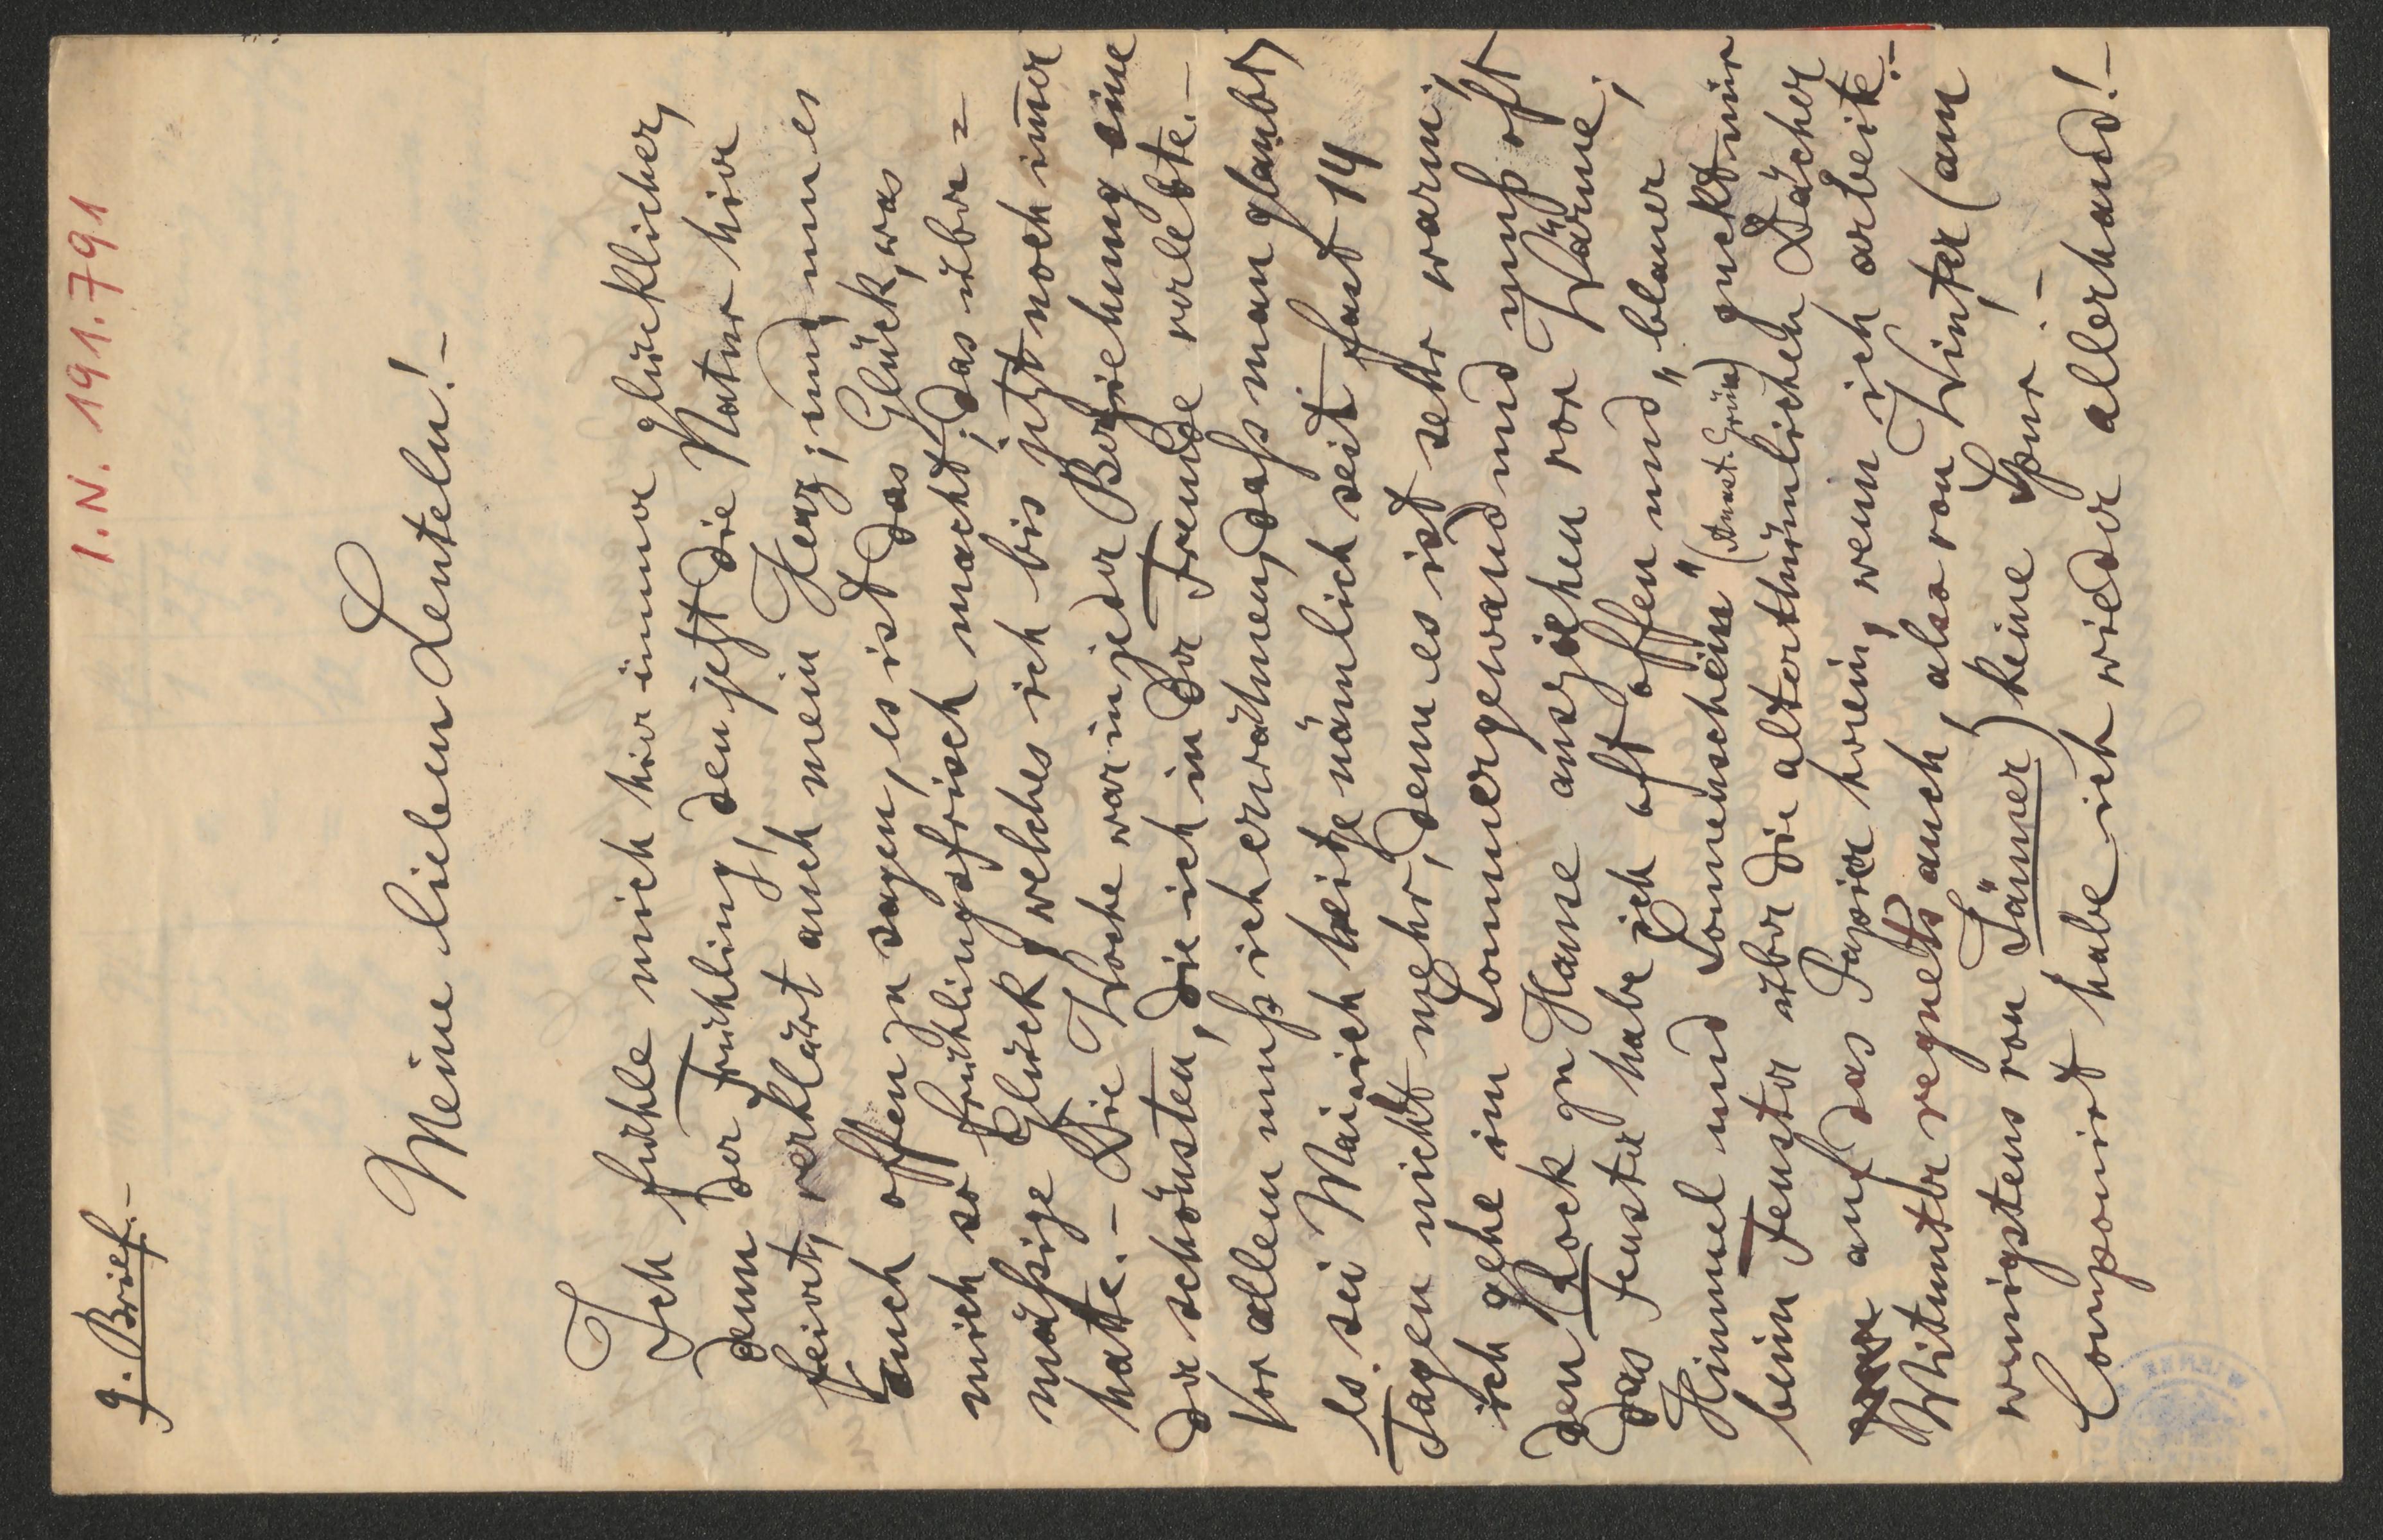 I.N. 191.791
9. Brief.–
Meine lieben Leuteln!–
Ich fühle mich hier immer glücklicher,
denn der Frühling, den jetzt die Natur hier
feiert, verklärt auch mein Herz; und um es
Euch offen zu sagen, es ist das Glück, was
mich so frühlingsfrisch macht; das über=
mäßige Glück, welches ich bis jetzt noch im̄er
hatte.– Die Woche war in jeder Beziehung eine
der schönsten, die ich in der Fremde verlebte.–
Vor allem muß ich erwähnen, daß man glaubt,
es sei Mai. ich heize nämlich seit fast 14
Tagen nicht mehr, denn es ist sehr warm;
ich gehe im Sommergewand und muß oft
den Rock zu Hause ausziehen vor Wärme;
das Fenster habe ich oft offen und „blauer
Himmel und Sonnenschein" (Anast. Grün) guckt mir
beim Fenster über die alterthümlichen Dächer
auf das Papier herein, wenn ich arbeite.–
Mitunter regnets auch, also von Winter (am
wenigstens von Jänner) keine Spur!–
Componirt habe ich wieder allerhand!–